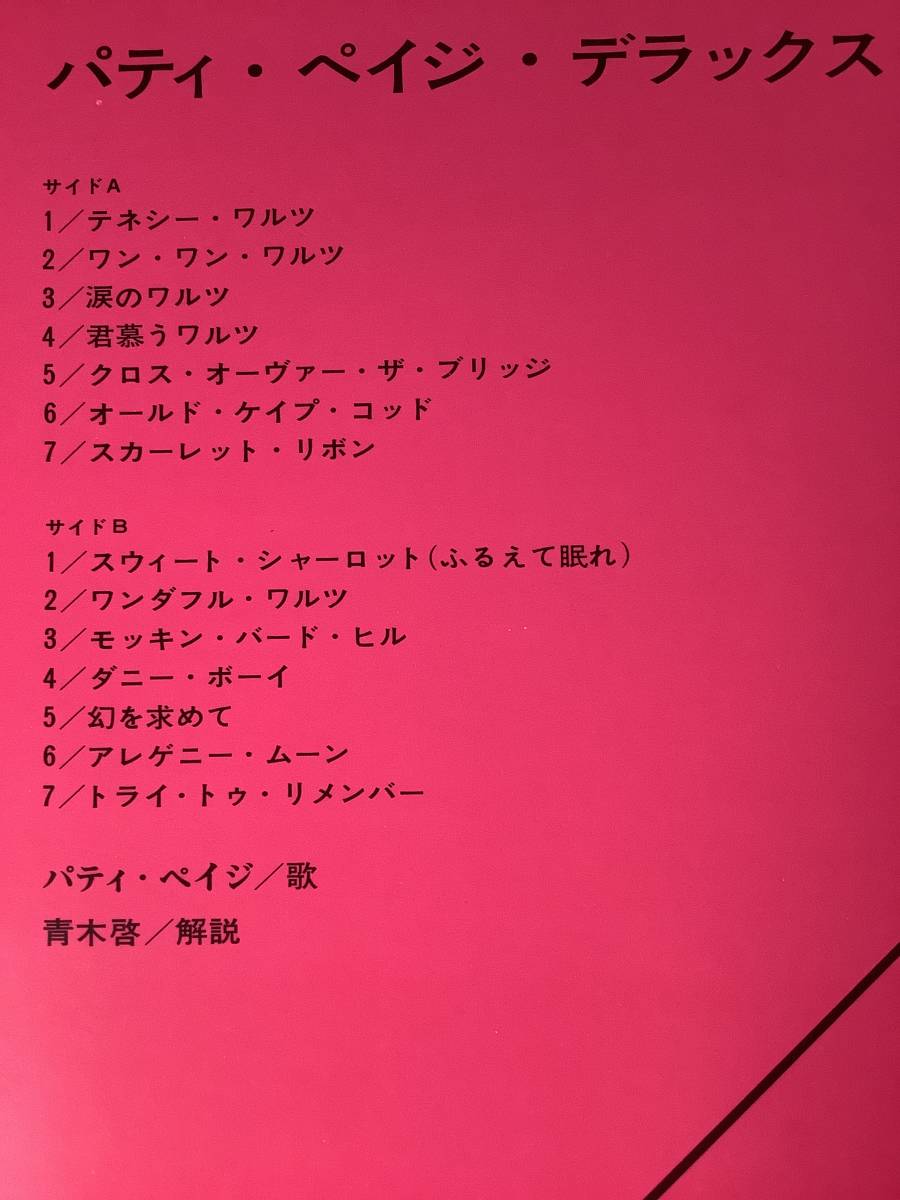 パティ・ペイジ・デラックス
サイドA
1／テネシー・ワルツ
2／ワン・ワン・ワルツ
3／涙のワルツ
4／君慕うワルツ
5／クロス・オーヴァー・ザ・ブリッジ
6／オールド・ケイプ・コッド
7／スカーレット・リボン
サイドB
1／スウィート・シャーロット(ふるえて眠れ)
2／ワンダフル・ワルツ
3／モッキン・バード・ヒル
4／ダニー・ボーイ
5／幻を求めて
6／アレゲニー・ムーン
7／トライ・トゥ・リメンバー
パティ・ペイジ／歌
青木啓／解説